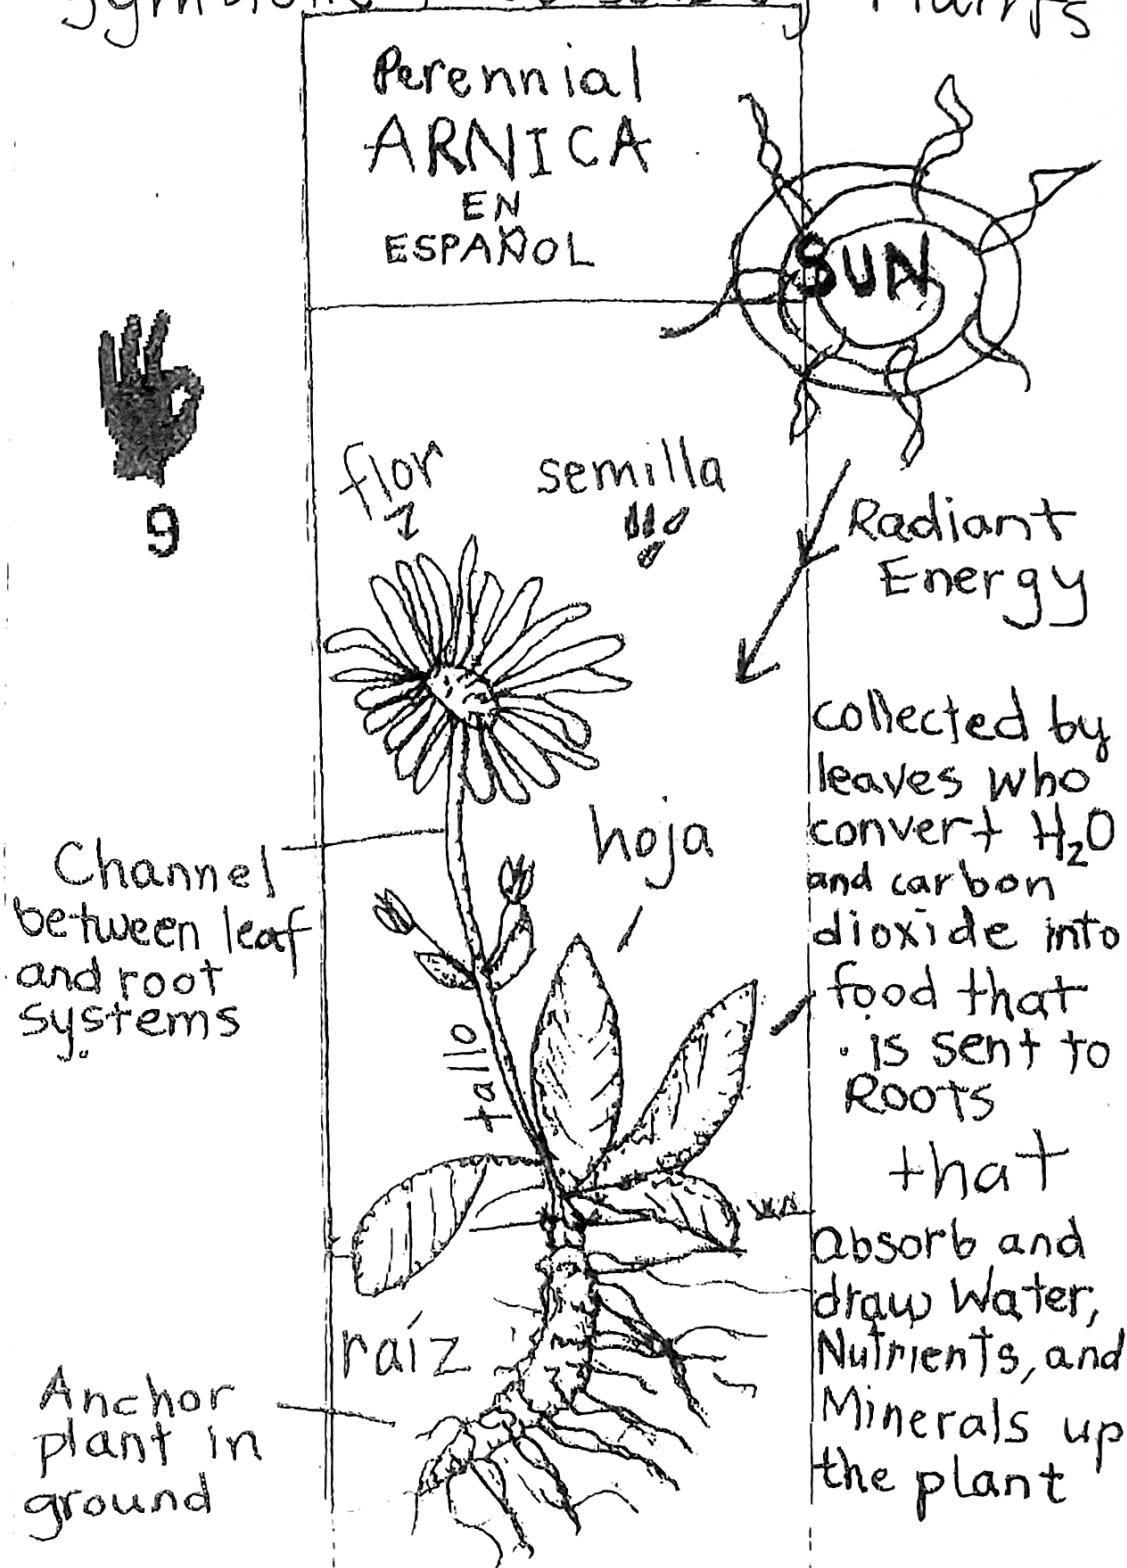 Plants
Perennial
ARNICA
EN
ESPAÑOL
SUN
9
flor
semilla
Radiant
Energy
collected by
leaves who
convert H₂O
and carbon
dioxide into
food that
is sent to
Roots
that
Absorb and
draw Water,
Nutrients, and
Minerals up
the plant
hoja
Channel
between leaf
and root
systems
tallo
raíz
Anchor
plant in
ground